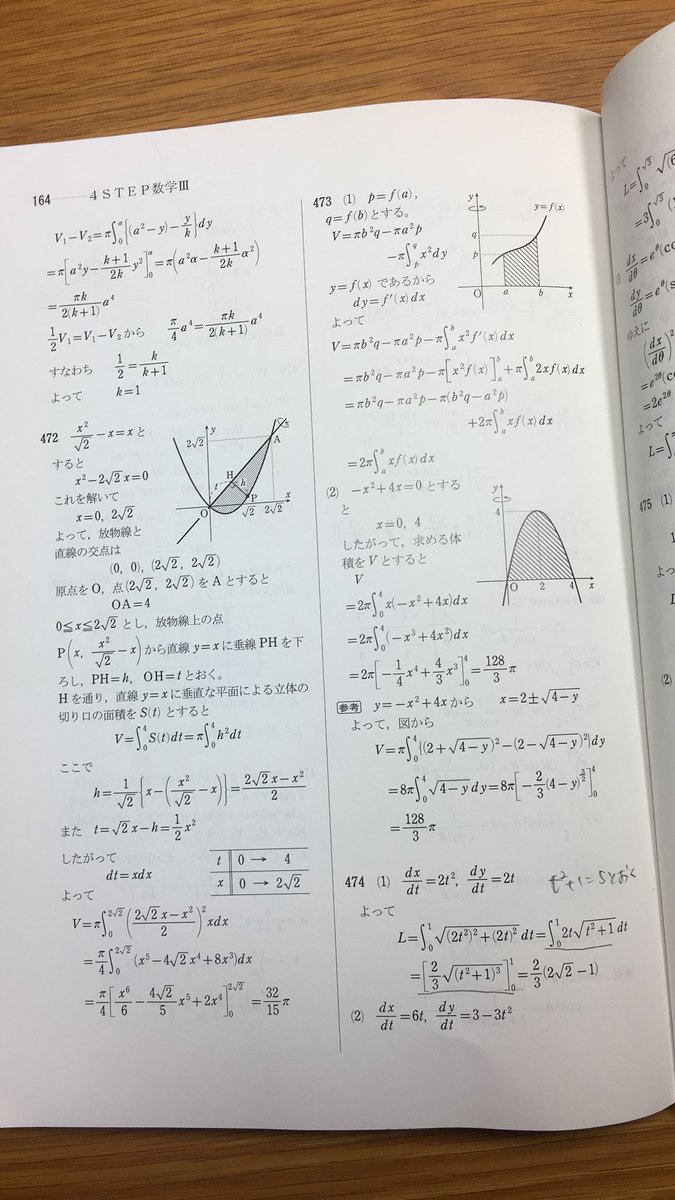 164 4STEP数学Ⅲ
V₁−V₂=π∫₀^α{(a²−y)−y/k}dy
=π[a²y−(k+1)/(2k) y²]₀^α=π(a²α−(k+1)/(2k) α²)
=πk/(2(k+1)) a⁴
1/2 V₁=V₁−V₂から π/4 a⁴=πk/(2(k+1)) a⁴
すなわち 1/2=k/(k+1)
よって k=1
472 x²/√2−x=xと
すると
x²−2√2x=0
これを解いて
x=0, 2√2
よって，放物線と
直線の交点は
(0, 0), (2√2, 2√2)
y
2√2
A
H
t
h
P
O
√2
2√2
x
原点をO，点(2√2, 2√2)をAとすると
OA=4
0≦x≦2√2とし，放物線上の点
P(x, x²/√2−x)から直線y=xに垂線PHを下
ろし，PH=h，OH=tとおく。
Hを通り，直線y=xに垂直な平面による立体の
切り口の面積をS(t)とすると
V=∫₀⁴S(t)dt=π∫₀⁴h²dt
ここで
h=1/√2{x−(x²/√2−x)}=(2√2x−x²)/2
また t=√2x−h=1/2 x²
したがって
dt=xdx
t 0 → 4
x 0 → 2√2
よって
V=π∫₀^{2√2}((2√2x−x²)/2)²xdx
=π/4∫₀^{2√2}(x⁵−4√2x⁴+8x³)dx
=π/4[x⁶/6−4√2/5 x⁵+2x⁴]₀^{2√2}=32/15 π
473 (1) p=f(a),
q=f(b)とする。
V=πb²q−πa²p
−π∫ₚ^q x²dy
y=f(x)であるから
dy=f′(x)dx
y
y=f(x)
q
p
O
a
b
x
よって
V=πb²q−πa²p−π∫ₐᵇx²f′(x)dx
=πb²q−πa²p−π[x²f(x)]ₐᵇ+π∫ₐᵇ2xf(x)dx
=πb²q−πa²p−π(b²q−a²p)
+2π∫ₐᵇxf(x)dx
=2π∫ₐᵇxf(x)dx
(2) −x²+4x=0とする
と
x=0, 4
したがって，求める体
積をVとすると
V
y
4
O
2
4
x
=2π∫₀⁴x(−x²+4x)dx
=2π∫₀⁴(−x³+4x²)dx
=2π[−1/4 x⁴+4/3 x³]₀⁴=128/3 π
参考 y=−x²+4xから x=2±√(4−y)
よって，図から
V=π∫₀⁴{(2+√(4−y))²−(2−√(4−y))²}dy
=8π∫₀⁴√(4−y)dy=8π[−2/3(4−y)^{3/2}]₀⁴
=128/3 π
474 (1) dx/dt=2t², dy/dt=2t
t²+1=sとおく
よって
L=∫₀¹√((2t²)²+(2t)²)dt=∫₀¹2t√(t²+1)dt
=[2/3√((t²+1)³)]₀¹=2/3(2√2−1)
(2) dx/dt=6t, dy/dt=3−3t²
よって
dx/dθ
dy/dθ
ゆえに
よって
475 (1)
(2)